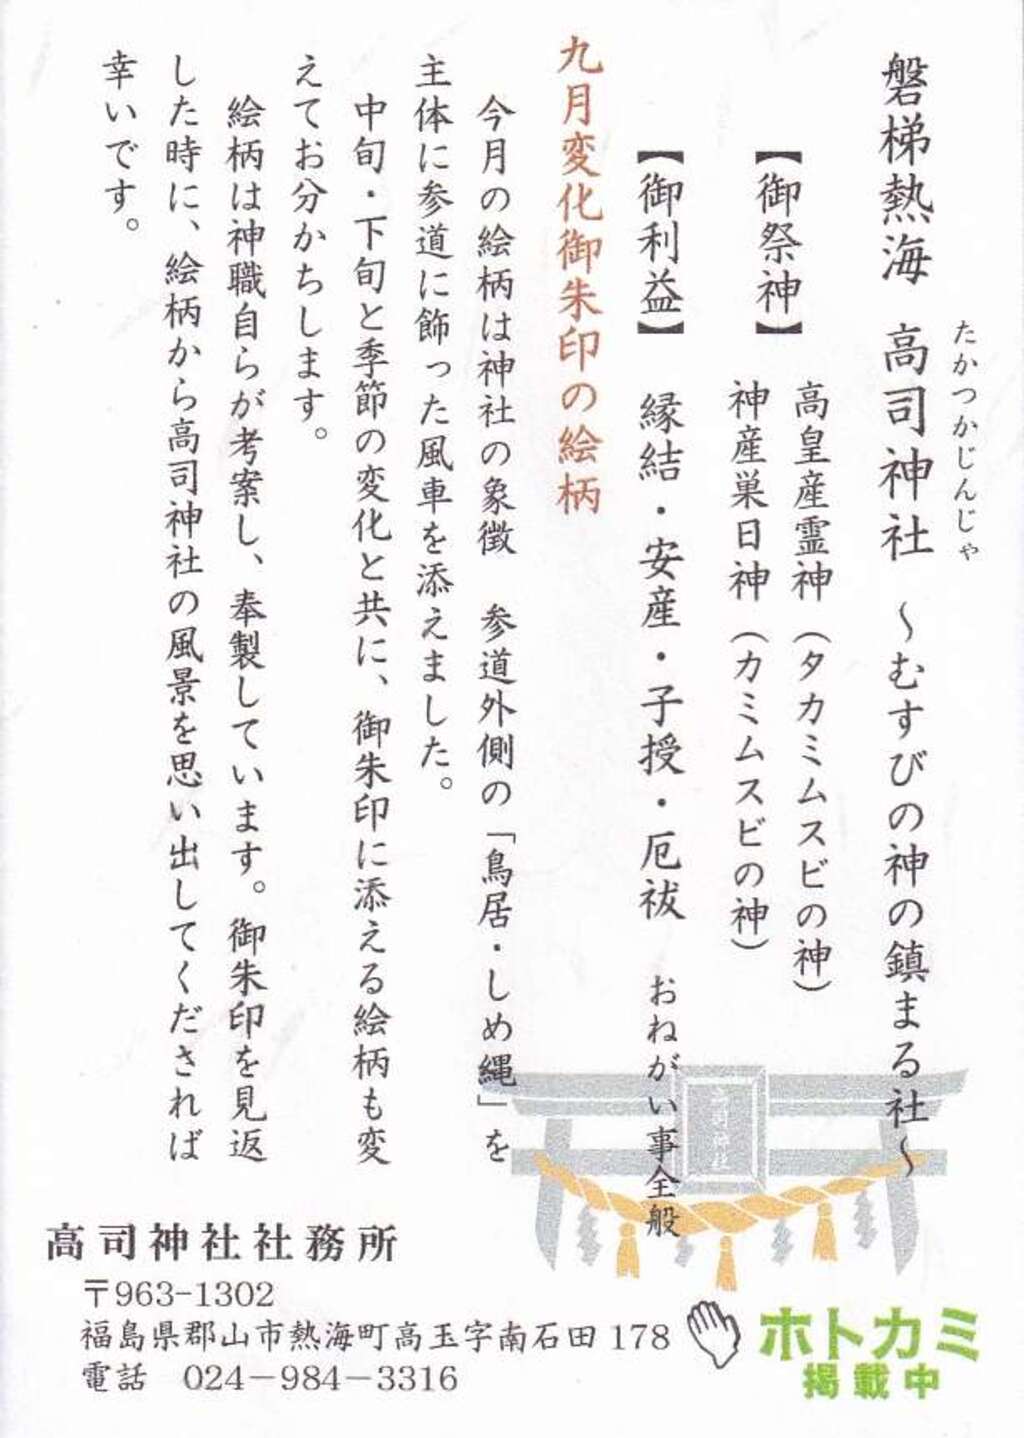 たかつかじんじゃ
磐梯熱海 高司神社 〜むすびの神の鎮まる社〜
【御祭神】 高皇産霊神（タカミムスビの神）
神産巣日神（カミムスビの神）
【御利益】 縁結・安産・子授・厄祓 おねがい事全般
九月変化御朱印の絵柄
今月の絵柄は神社の象徴 参道外側の「鳥居・しめ縄」を
主体に参道に飾った風車を添えました。
中旬・下旬と季節の変化と共に、御朱印に添える絵柄も変
えてお分かちします。
絵柄は神職自らが考案し、奉製しています。御朱印を見返
した時に、絵柄から高司神社の風景を思い出してくだされば
幸いです。
高司神社
高司神社社務所
〒963-1302
福島県郡山市熱海町高玉字南石田 178
電話 024－984－3316
ホトカミ
掲載中